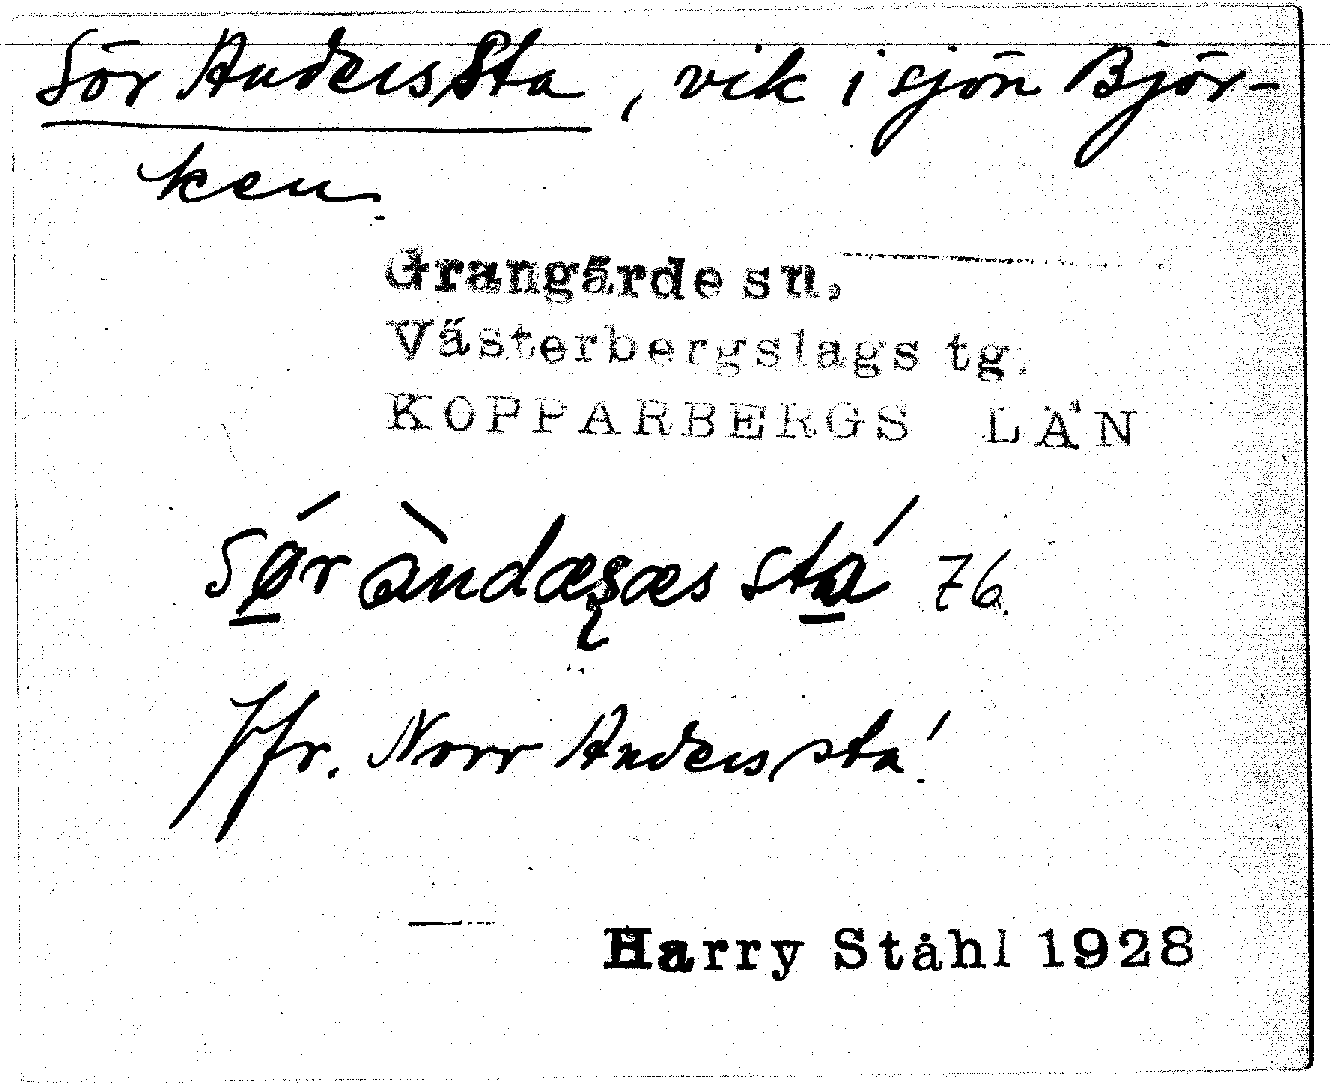 Sör Anderssta, vik i sjön Björ-
ken.
Grangärde sn,
Västerbergslags tg.
KOPPARBERGS LÄN
Sør àndæsæs stá 76.
Jfr. Norr Anderssta!
Harry Ståhl 1928